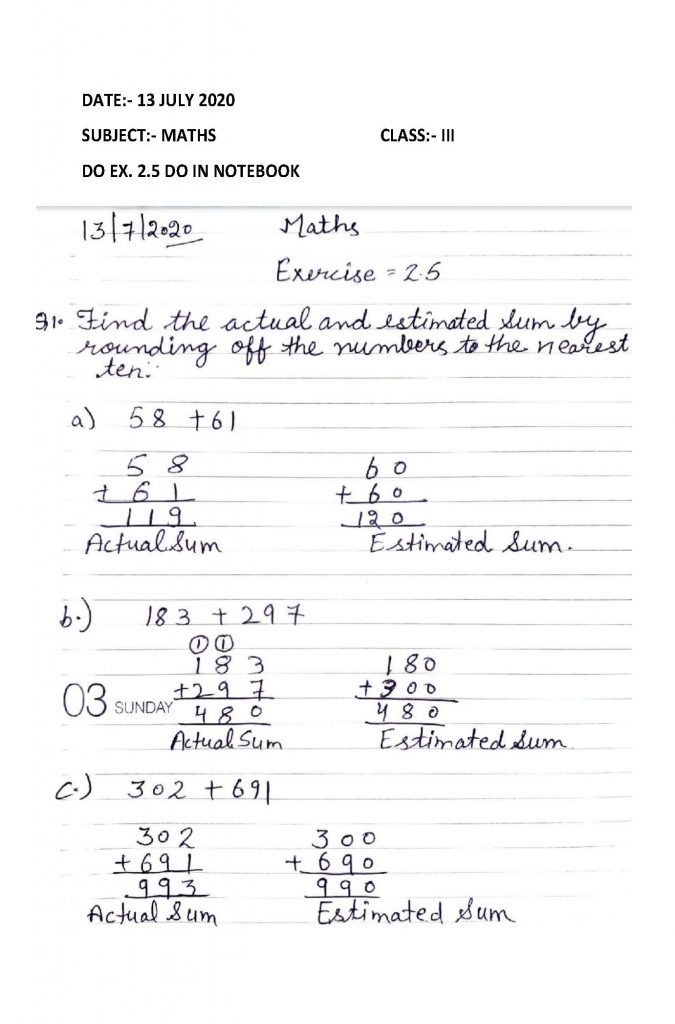 DATE:- 13 JULY 2020
SUBJECT:- MATHS CLASS:- III
DO EX. 2.5 DO IN NOTEBOOK
13/7/2020 Maths
Exercise = 2.5
Q1. Find the actual and estimated sum by
rounding off the numbers to the nearest
ten.
a) 58 + 61
58 60
+ 61 + 60
119 120
Actual Sum Estimated Sum.
b.) 183 + 297
1 1
183 180
+297 +300
03 SUNDAY 480 480
Actual Sum Estimated Sum.
c.) 302 + 691
302 300
+691 + 690
993 990
Actual Sum Estimated Sum